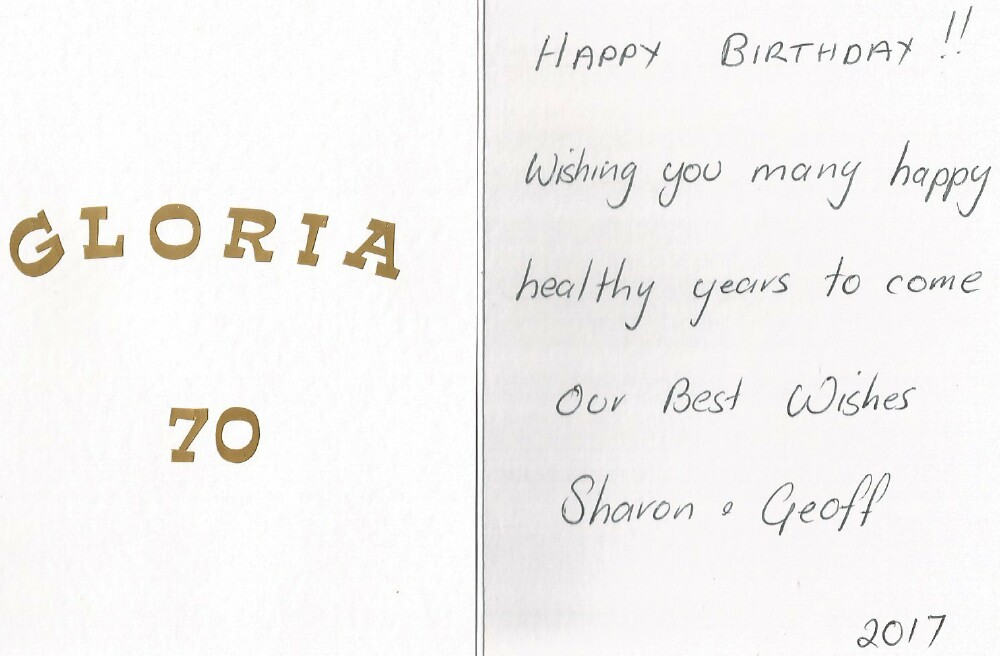 GLORIA
70
HAPPY BIRTHDAY!!
Wishing you many happy
healthy years to come
Our Best Wishes
Sharon & Geoff
2017